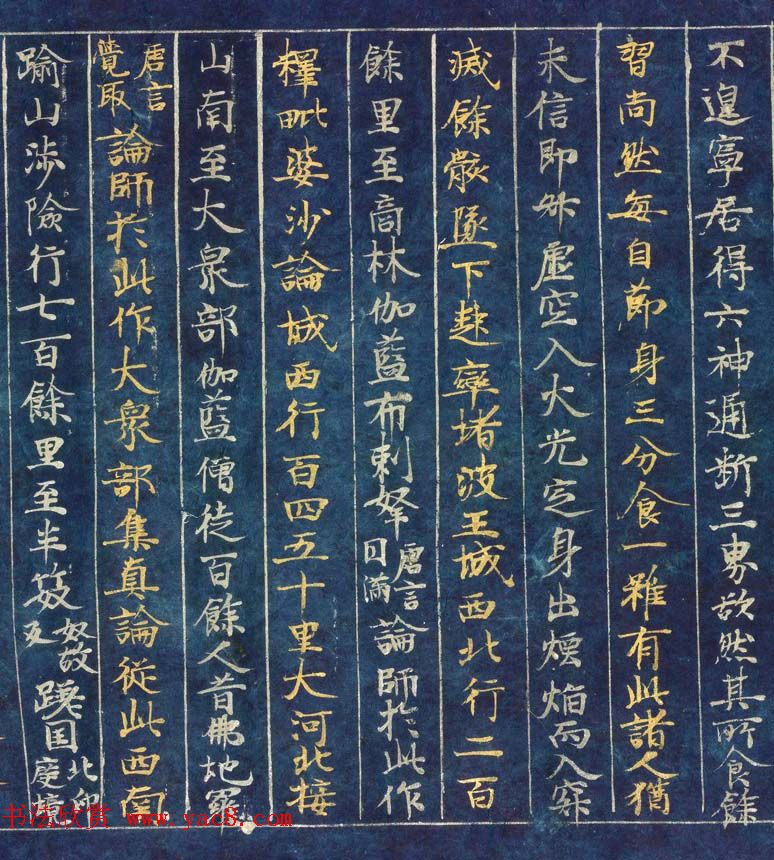 不遑寧居得六神通断三界欲然其所食餘
習尚然每自節身三分食一雖有此諸人猶
未信即昇虛空入火光定身出煙焰而入寂
滅餘骸墜下起窣堵波王城西北行二百
餘里至商林伽藍布剌拏唐言曰滿論師於此作
釋毗婆沙論城西行百四五十里大河北接
山南至大衆部伽藍僧徒百餘人昔佛地羅
唐言覺取論師於此作大衆部集真論從此西南
踰山涉險行七百餘里至半笯奴故反蹉国北印度境
书法欣赏 www.yac8.com